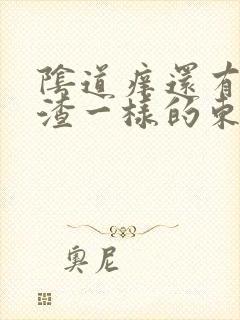 陰道痒還有
渣一樣的東
奧尼